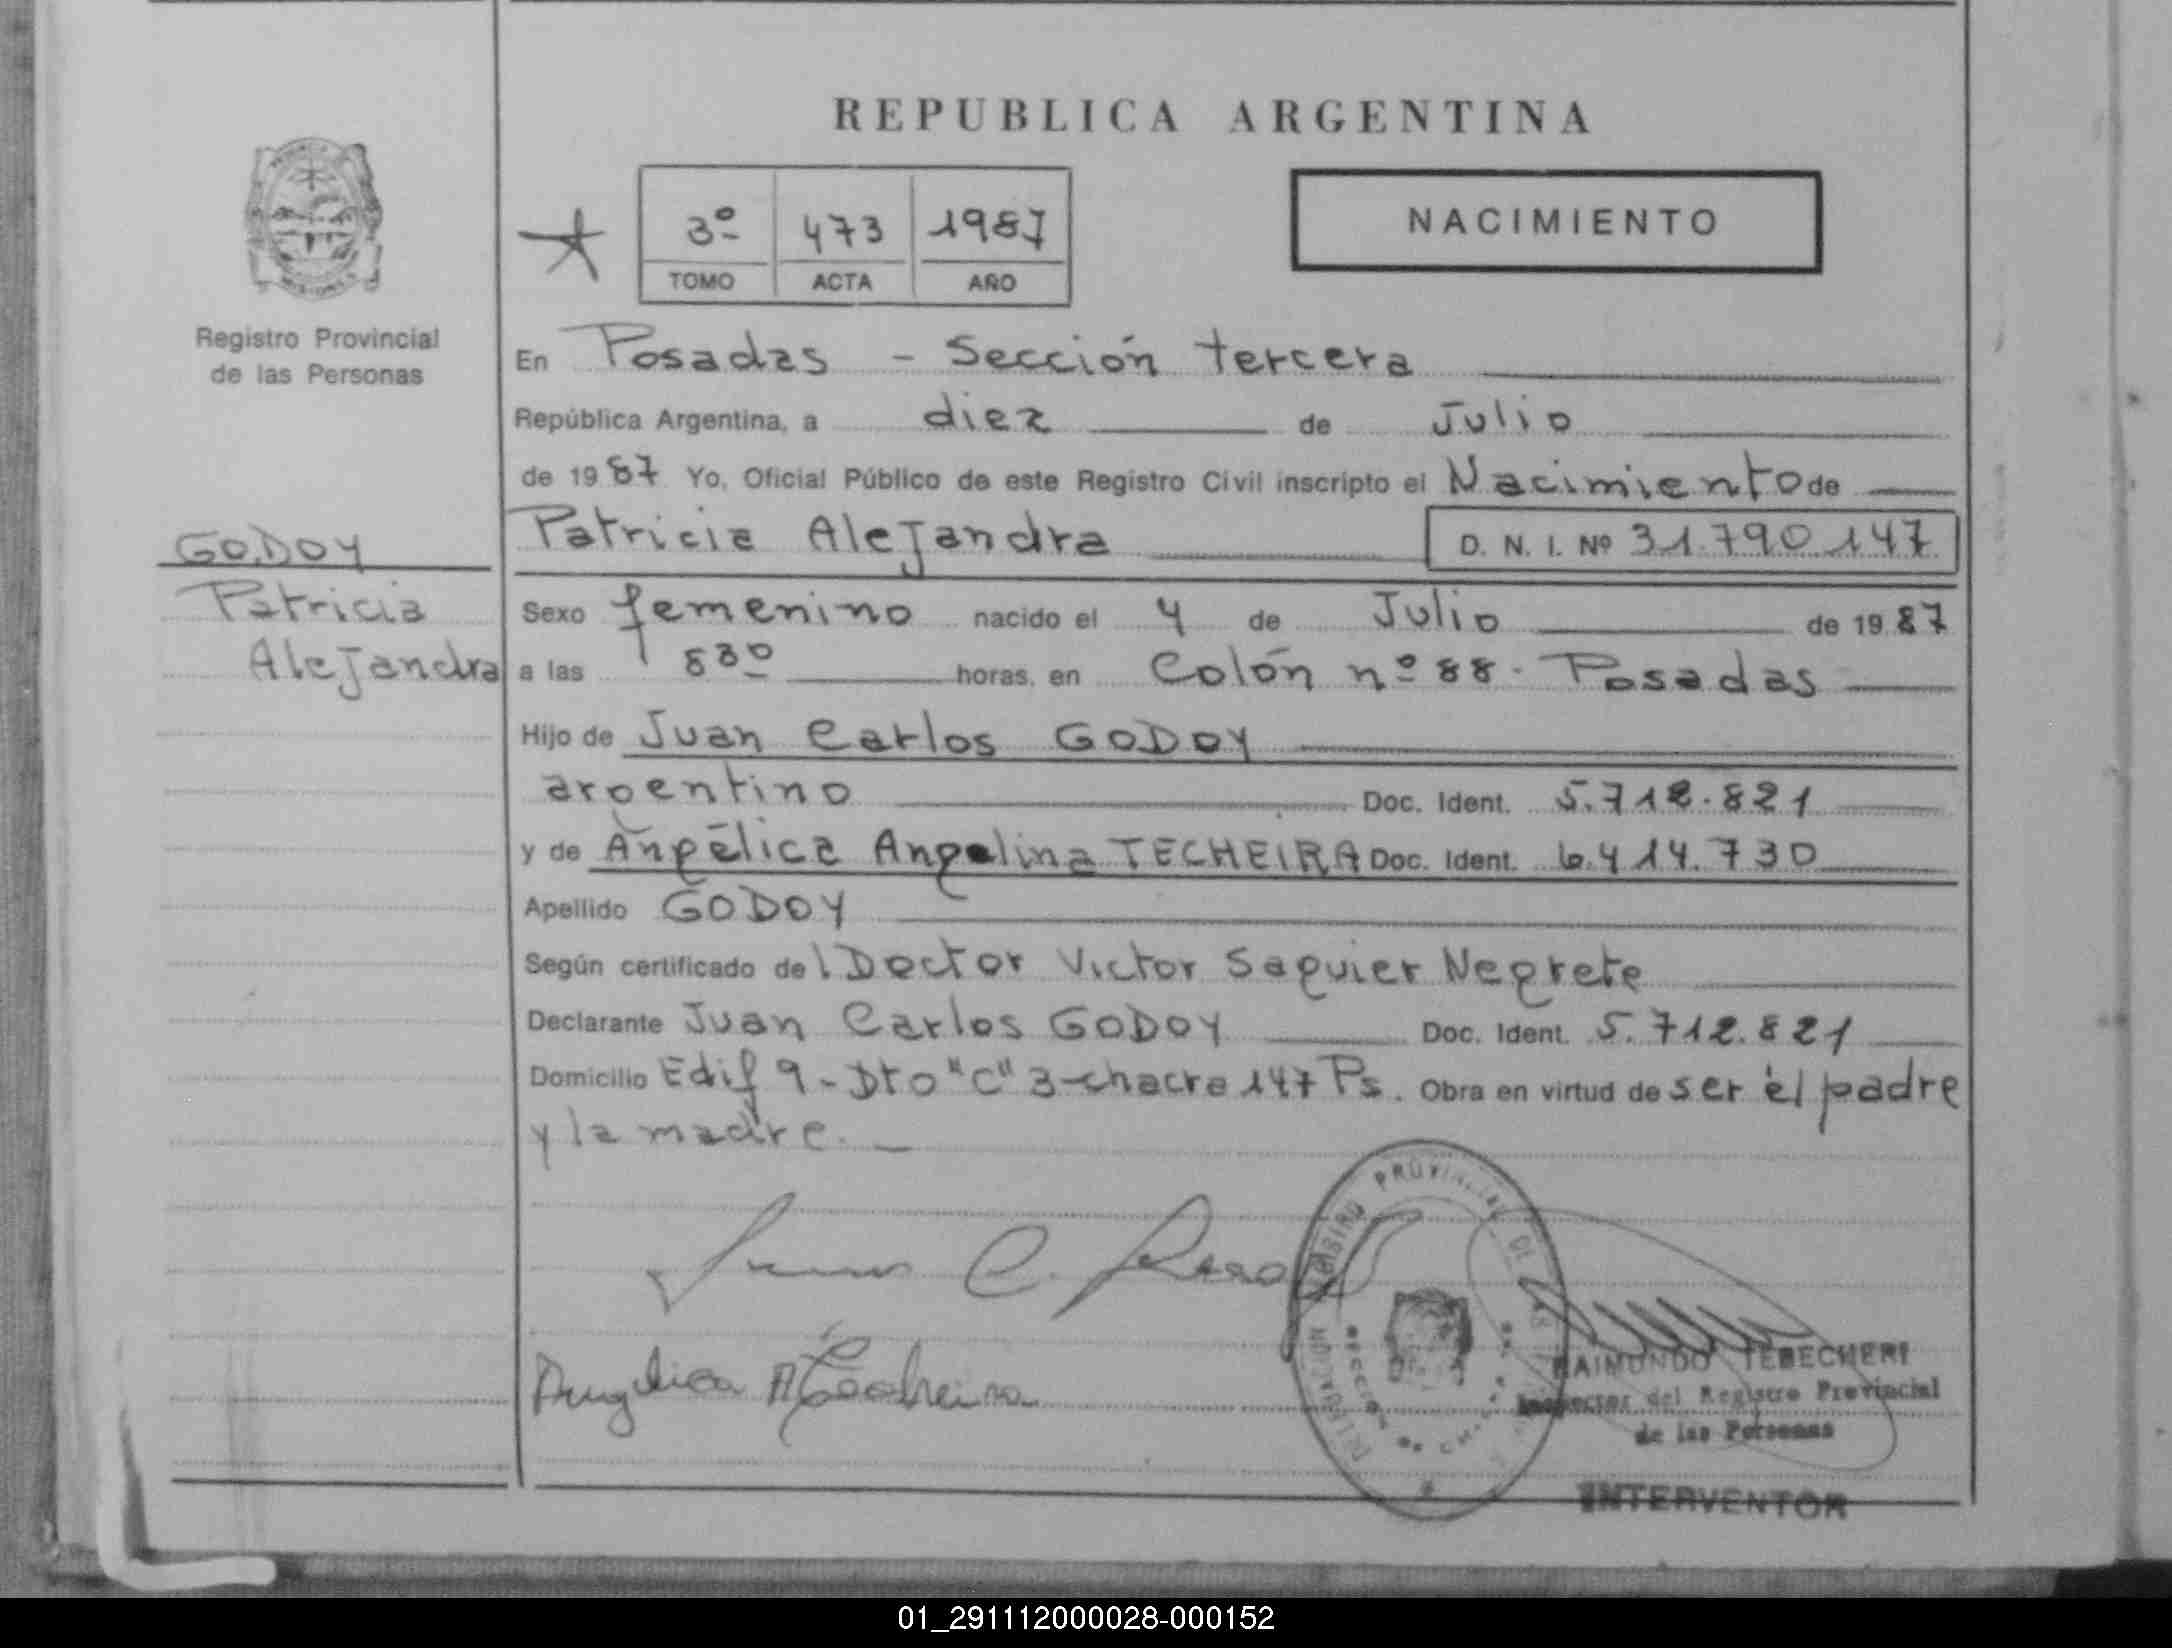 REPUBLICA ARGENTINA
3º 473 1987
TOMO ACTA AÑO
NACIMIENTO
Registro Provincial
de las Personas
En Posadas - Sección tercera
República Argentina, a diez de Julio
de 1987 Yo, Oficial Público de este Registro Civil inscripto el Nacimiento de
Patricia Alejandra D. N. I. Nº 31.790.147
GODOY
Patricia
Alejandra
Sexo femenino nacido el 4 de Julio de 1987
a las 830 horas, en Colón nº 88 - Posadas
Hijo de Juan Carlos GODOY
argentino Doc. Ident. 5.712.821
y de Angélica Angelina TECHEIRA Doc. Ident. 6.414.730
Apellido GODOY
Según certificado del Doctor Victor Saguier Negrete
Declarante Juan Carlos GODOY Doc. Ident. 5.712.821
Domicilio Edif 9 - Dto "C" 3 - chacra 147 Ps. Obra en virtud de ser el padre
y la madre.
RAIMUNDO TEBECHERI
Inspector del Registro Provincial
de las Personas
INTERVENTOR
01_291112000028-000152